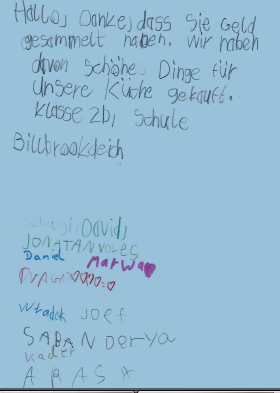 Hallo, Danke, dass Sie Geld
gesammelt haben. Wir haben
davon schöne Dinge für
Unsere Küche gekauft.
Klasse 2b, Schule
Billbrookdeich
David,
JONATAN
Daniel
Marwa
Wladek Joef
SABAN Derya
Kader
ARASA